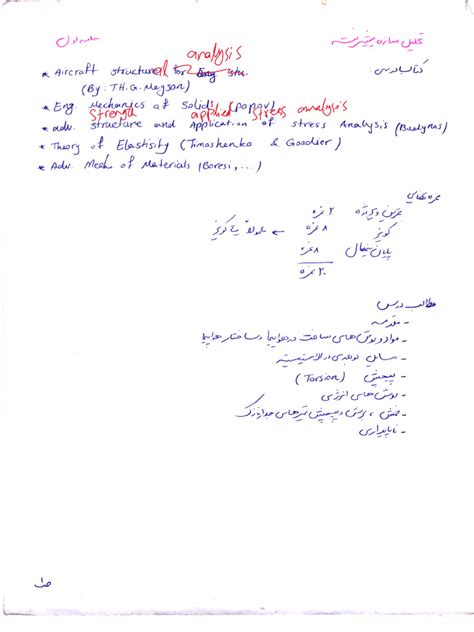 تحلیل سازه پیشرفته
جلسه اول
کتاب درسی
analysis
* Aircraft structural for Eng stu.
(By: T.H.G. Megson)
* Eng. Mechanics of Solids (Popov)
Strength applied stress analysis
* adv. structure and Application of stress Analysis (Budynas)
* Theory of Elastisity (Timoshenko & Goodier)
* Adv. Mech of Materials (Boresi, ...)
نمره‌های
تمرین و پروژه ۲ نمره
کوئیز ۸ نمره ←
پایان ترم ۸ نمره
۲۰ نمره
مطالب درس
- مقدمه
- مواد و روش های ساخت در هواپیما و ساختار هواپیما
- مسایل دوبعدی در الاستیسیته
- پیچش (Torsion)
- روش های انرژی
- خمش، برش و پیچش تیرهای جدار نازک
- ناپایداری
ص۱